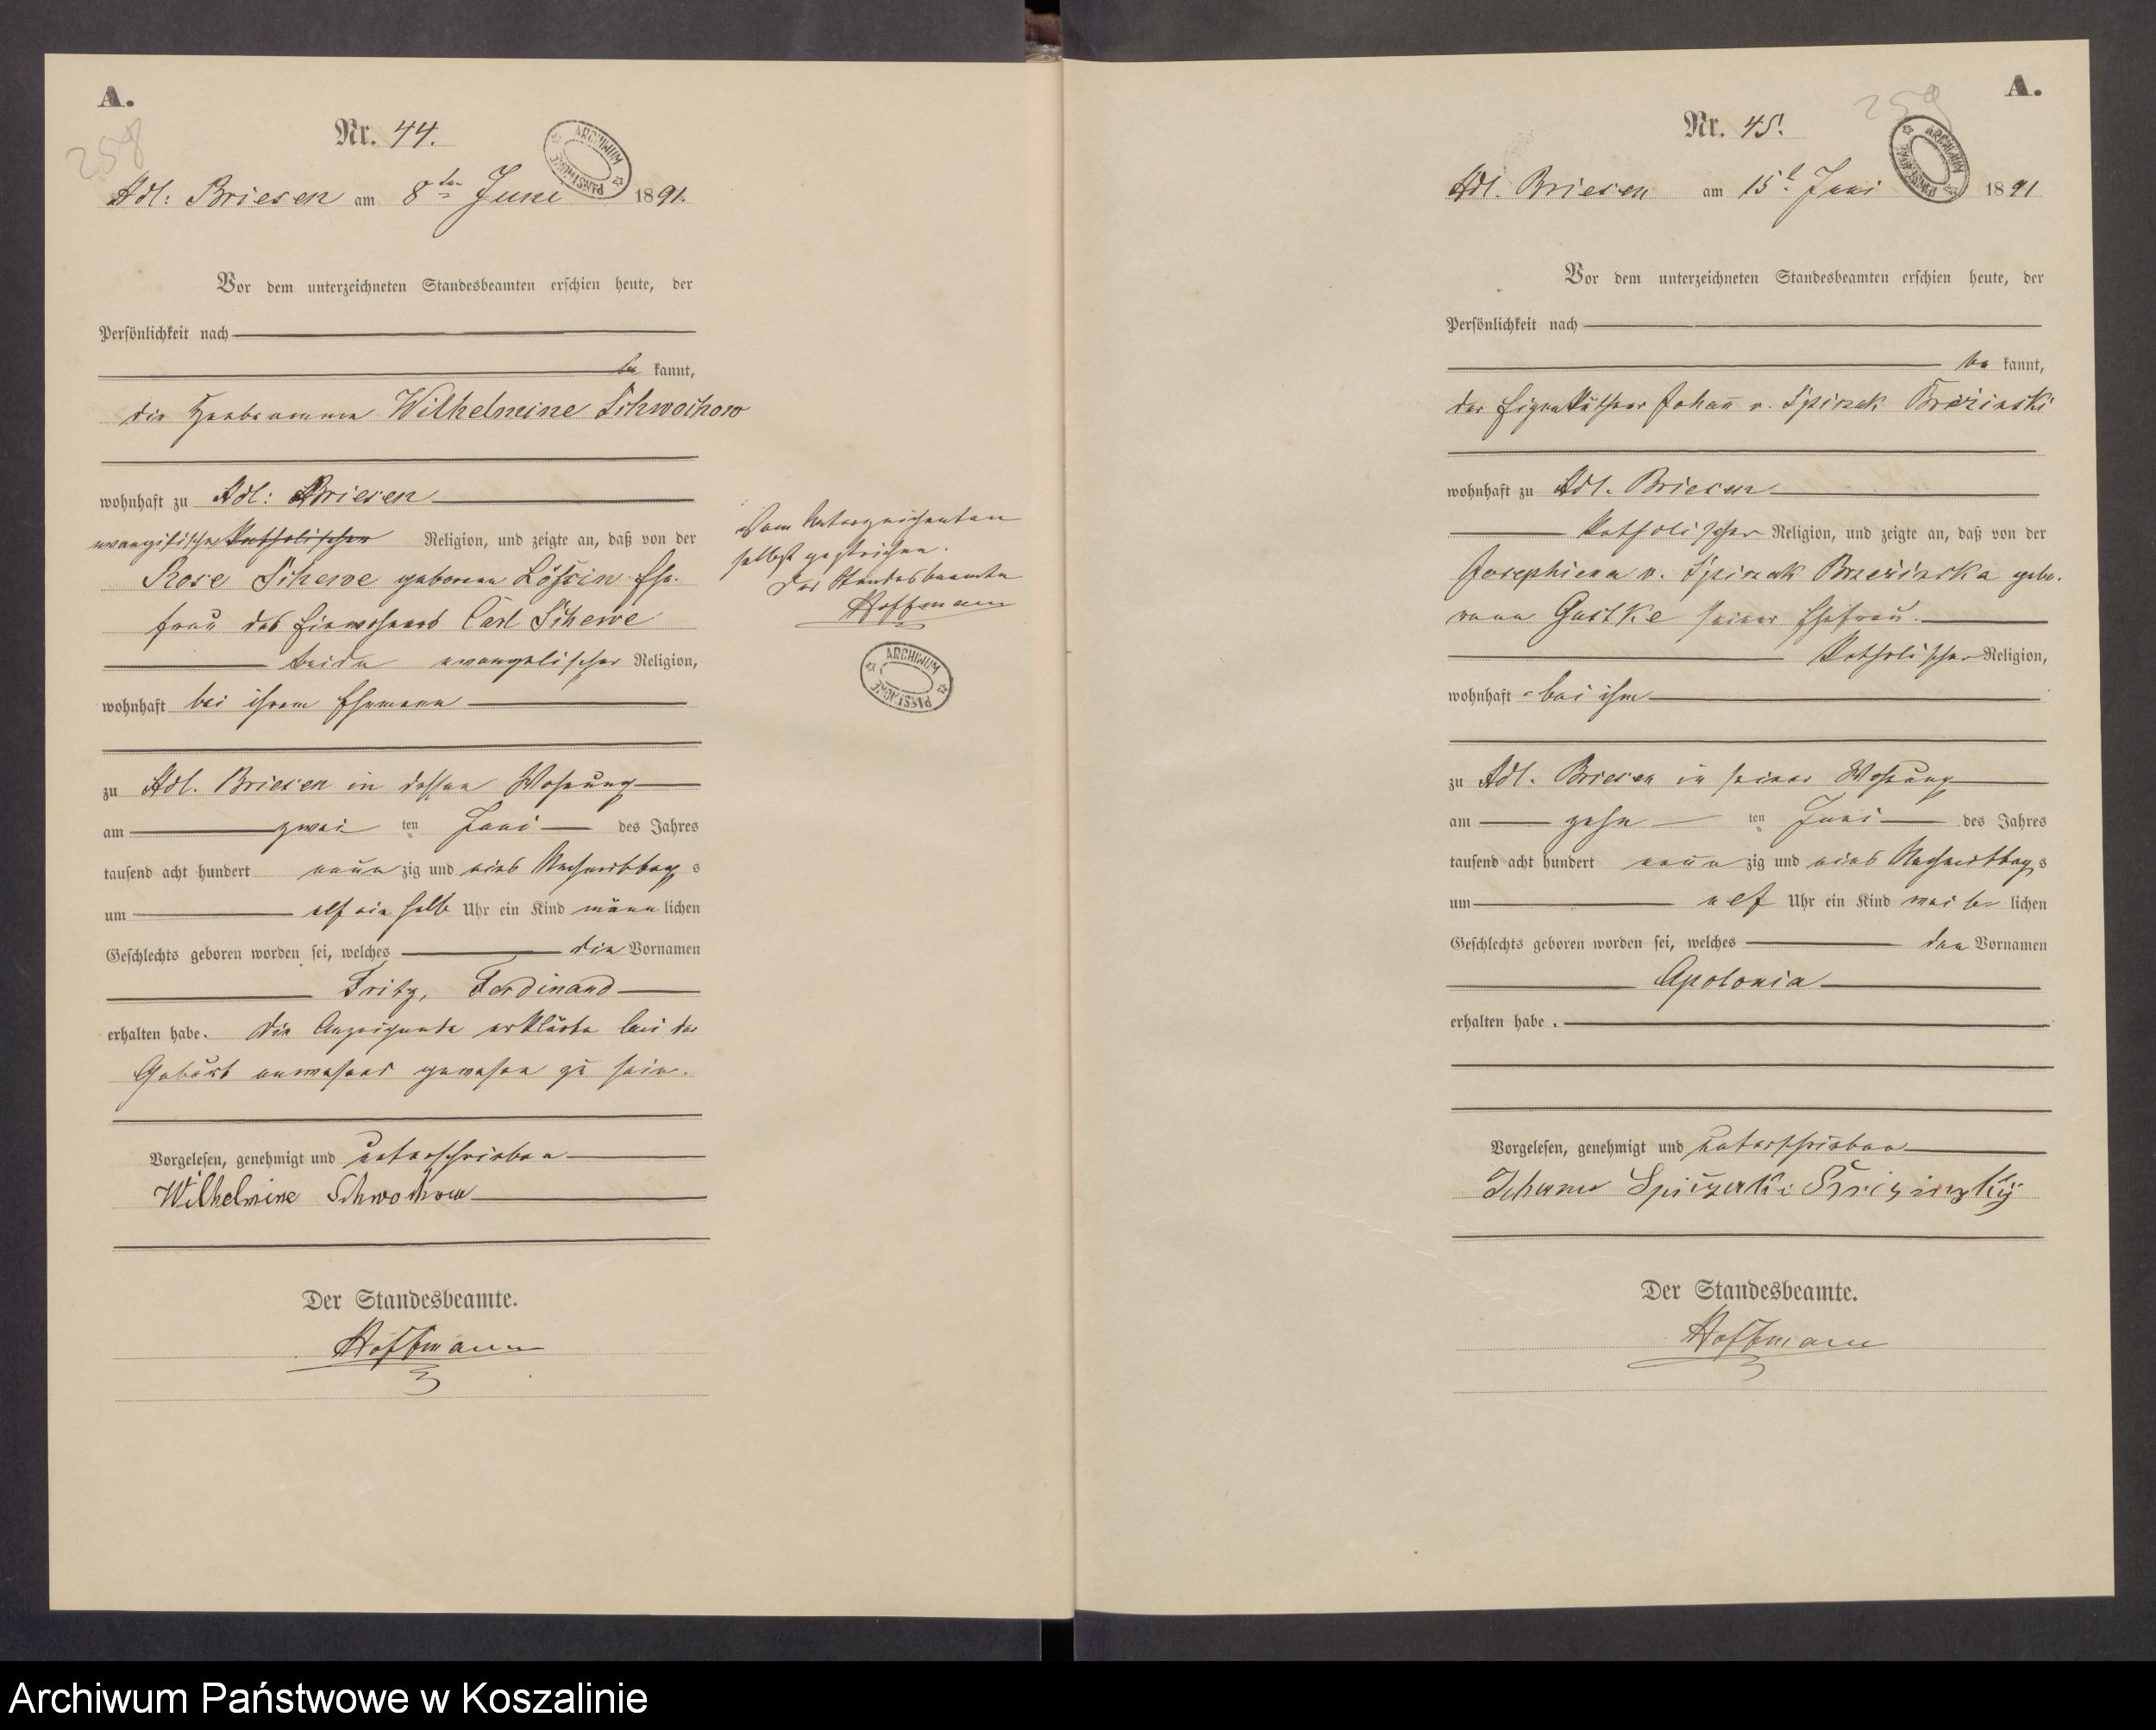 A.
258
Nr. 44.
Adl: Briesen am 8ten Juni 1891.
ARCHIWUM PAŃSTWOWE
Vor dem unterzeichneten Standesbeamten erschien heute, der
Persönlichkeit nach
be kannt,
die Hebeamme Wilhelmine Schwochow
wohnhaft zu Adl: Briesen
evangelischer katholischer Religion, und zeigte an, daß von der
Rose Schewe geborene Lössin Ehe-
frau des Einwohners Carl Schewe
beide evangelischer Religion,
wohnhaft bei ihrem Ehemann
zu Adl. Briesen in dessen Wohnung
am zwei ten Juni des Jahres
tausend acht hundert neun zig und eins Nachmittag s
um elf ein halb Uhr ein Kind männ lichen
Geschlechts geboren worden sei, welches die Vornamen
Fritz, Ferdinand
erhalten habe. Die Anzeigende erklärte bei der
Geburt anwesend gewesen zu sein.
Vorgelesen, genehmigt und unterschrieben
Wilhelmine Schwochow
Der Standesbeamte.
Hoffmann
Vom Unterzeichneten
selbst gestrichen.
Der Standesbeamte
Hoffmann
ARCHIWUM PAŃSTWOWE
A.
259
Nr. 45.
Adl. Briesen am 15t. Juni 1891
ARCHIWUM PAŃSTWOWE
Vor dem unterzeichneten Standesbeamten erschien heute, der
Persönlichkeit nach
be kannt,
der Eigenkäthner Johann v. Spiczak Brezinski
wohnhaft zu Adl. Briesen
katholischer Religion, und zeigte an, daß von der
Josephiena v. Spiczak Brzezinska gebo-
rene Gustke seiner Ehefrau.
katholischer Religion,
wohnhaft bei ihm
zu Adl. Briesen in seiner Wohnung
am zehn ten Juni des Jahres
tausend acht hundert neun zig und eins Nachmittag s
um elf Uhr ein Kind weib lichen
Geschlechts geboren worden sei, welches den Vornamen
Apolonia
erhalten habe.
Vorgelesen, genehmigt und unterschrieben
Der Standesbeamte.
Hoffmann
Archiwum Państwowe w Koszalinie